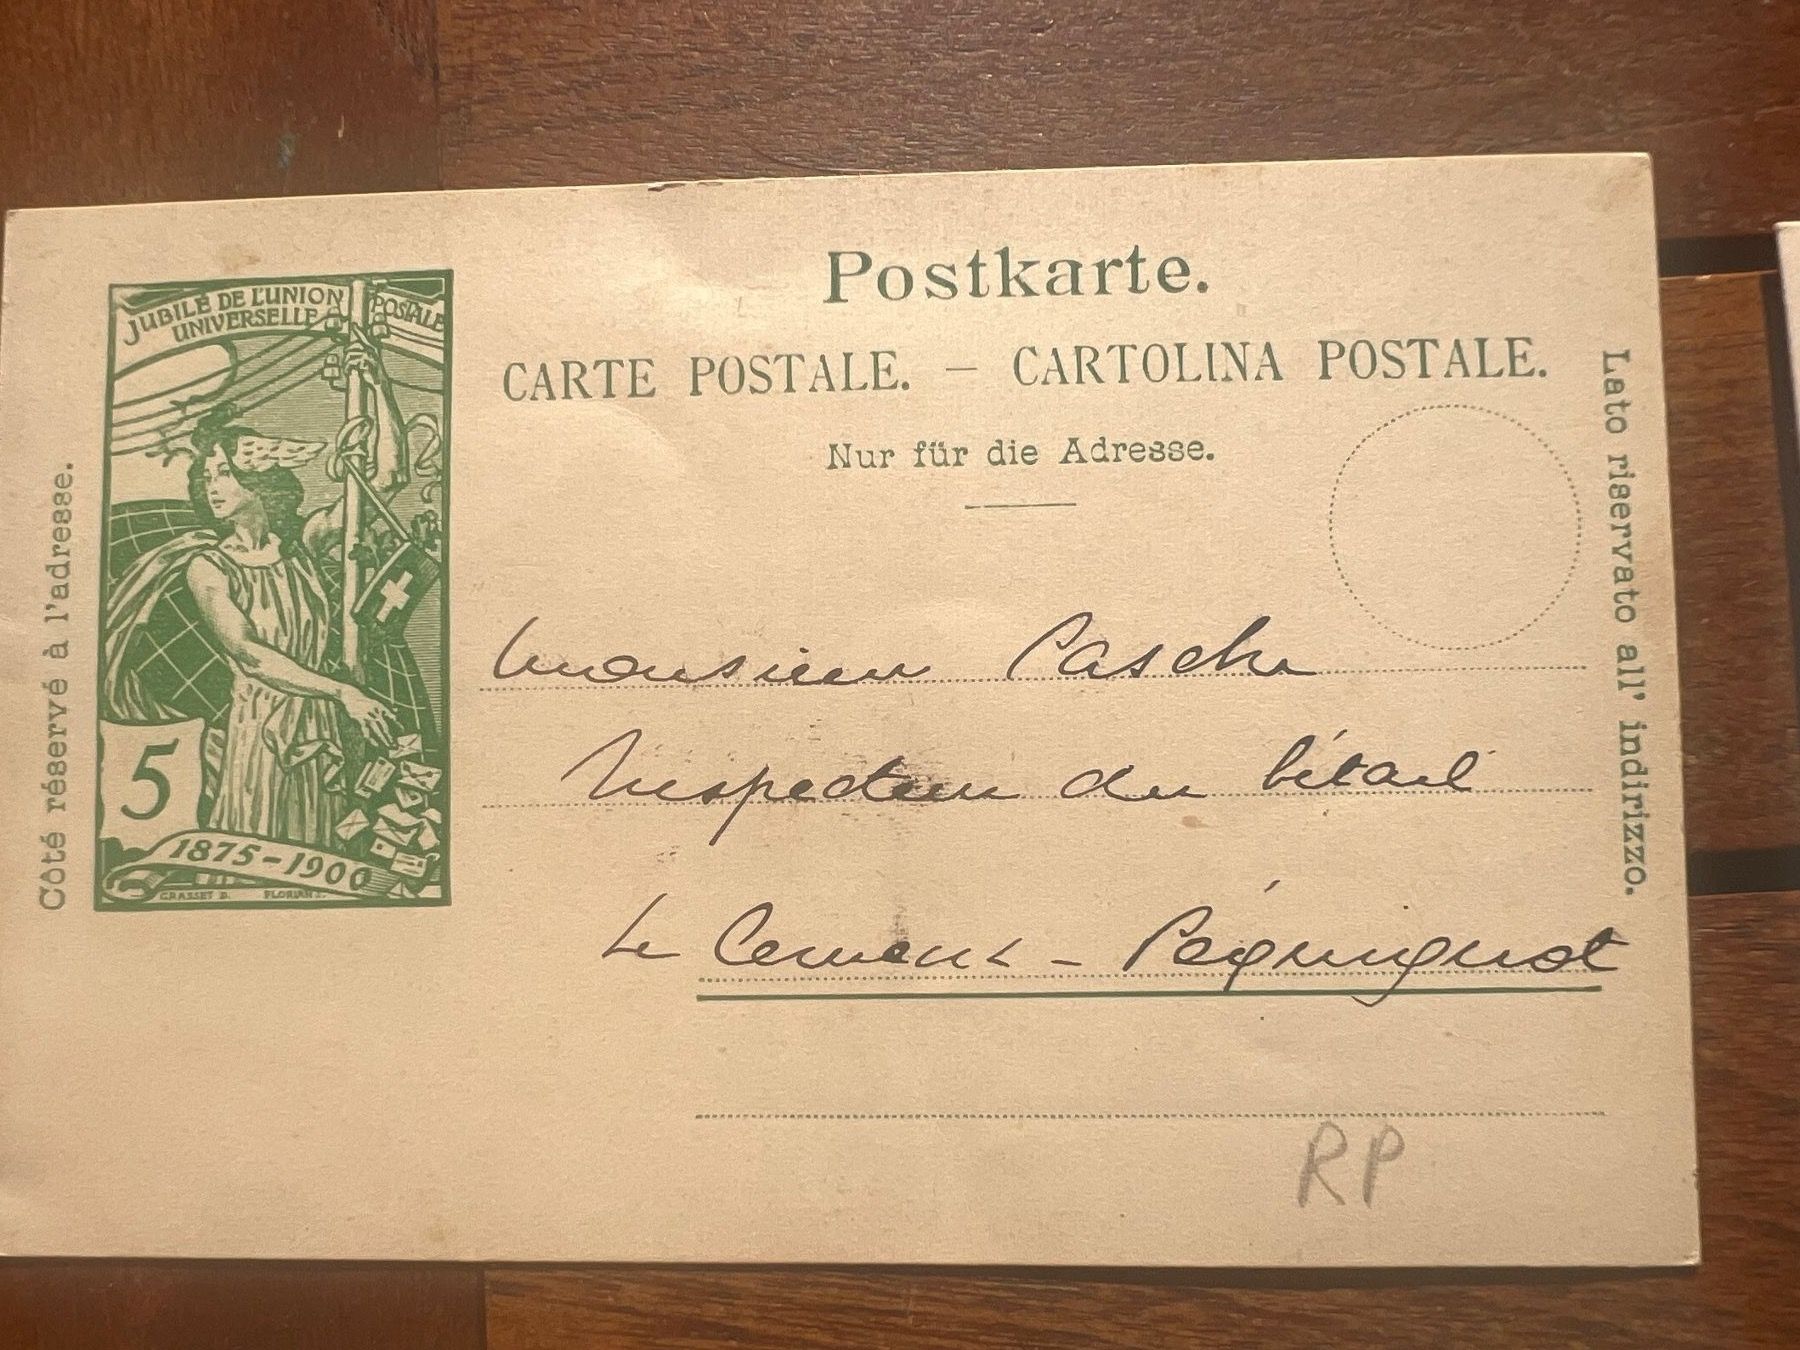 Postkarte.
CARTE POSTALE. — CARTOLINA POSTALE.
Nur für die Adresse.
Côté réservé à l'adresse.
Lato riservato all' indirizzo.
JUBILÉ DE L'UNION POSTALE
UNIVERSELLE
5
1875-1900
GRASSET D. FLORIAN
Monsieur Pasche
Inspecteur du bétail
Le Cerneux-Péquignot
RP